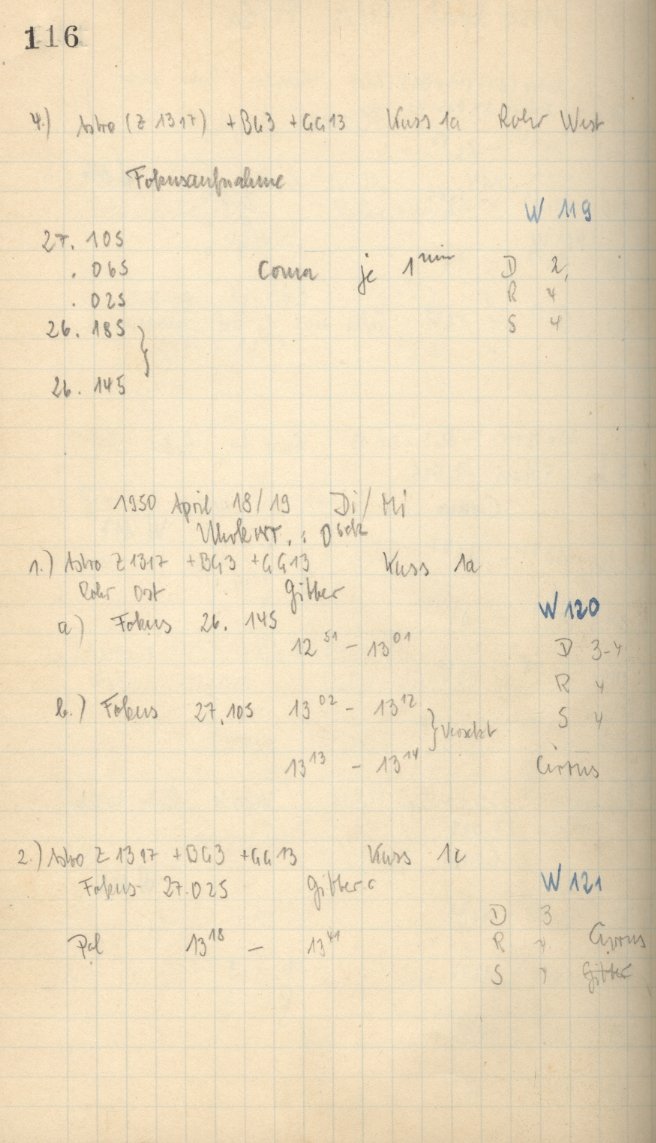 116
4.) Astro (Z 1317) + BG3 + GG13 Kass 1a Rohr West
Fokusaufnahme
W 119
27. 105
. 065 Coma je 1 min D 2
. 025 R 4
26. 185 } S 4
26. 145
1950 April 18/19 Di/Mi
Uhrkorr. : 0 sek
1.) Astro Z 1317 + BG3 + GG13 Kass 1a
Rohr Ost Gitter
W 120
a) Fokus 26. 145
12 51 – 13 01 D 3-4
R 4
b.) Fokus 27.105 13 02 – 13 12 } S 4
13 13 – 13 14 Cirrus
2.) Astro Z 1317 + BG3 + GG13 Kass 1c
Fokus 27.025 Gitter W 121
D 3
Pol 13 18 – 13 41 R 4 Cirrus
S Gitter